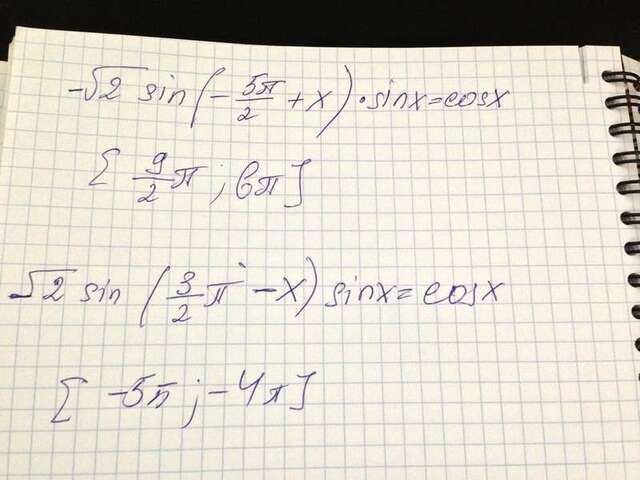 -√2 sin(-5π/2 + x) · sinx = cosx
[9/2 π ; 6π]
√2 sin(3/2 π - x) sinx = cosx
[-5π ; -4π]